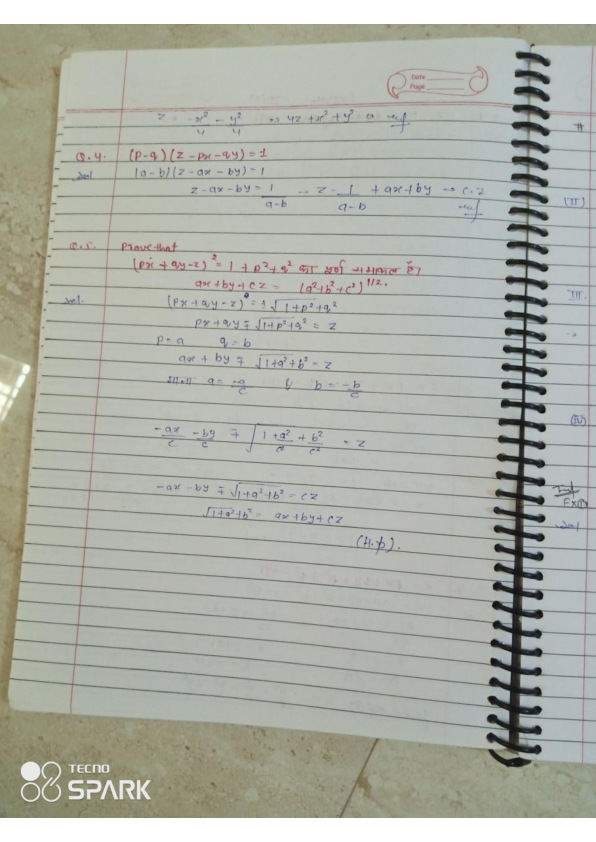 Date
Page
z = -x²/4 - y²/4 => 4z + x² + y² = 0
Q.4. (p-q) (z-px-qy) = 1
(a-b) (z-ax-by) = 1
z-ax-by = 1/a-b z = 1/a-b + ax+by
Q.5. Prove that
(px+qy-z)² = 1+p²+q² का पूर्ण समाकल है।
ax+by+cz = (a²+b²+c²)^1/2.
(px+qy-z) = ± √1+p²+q²
px+qy ∓ √1+p²+q² = z
p=a q=b
ax+by ∓ √1+a²+b² = z
माना a = -a/c b = -b/c
-ax/c -by/c ∓ √1+a²/c² + b²/c² = z
-ax-by ∓ √1+a²+b² = cz
√1+a²+b² = ax+by+cz
(H.p).
#
(II)
III.
(IV)
TECNO
SPARK